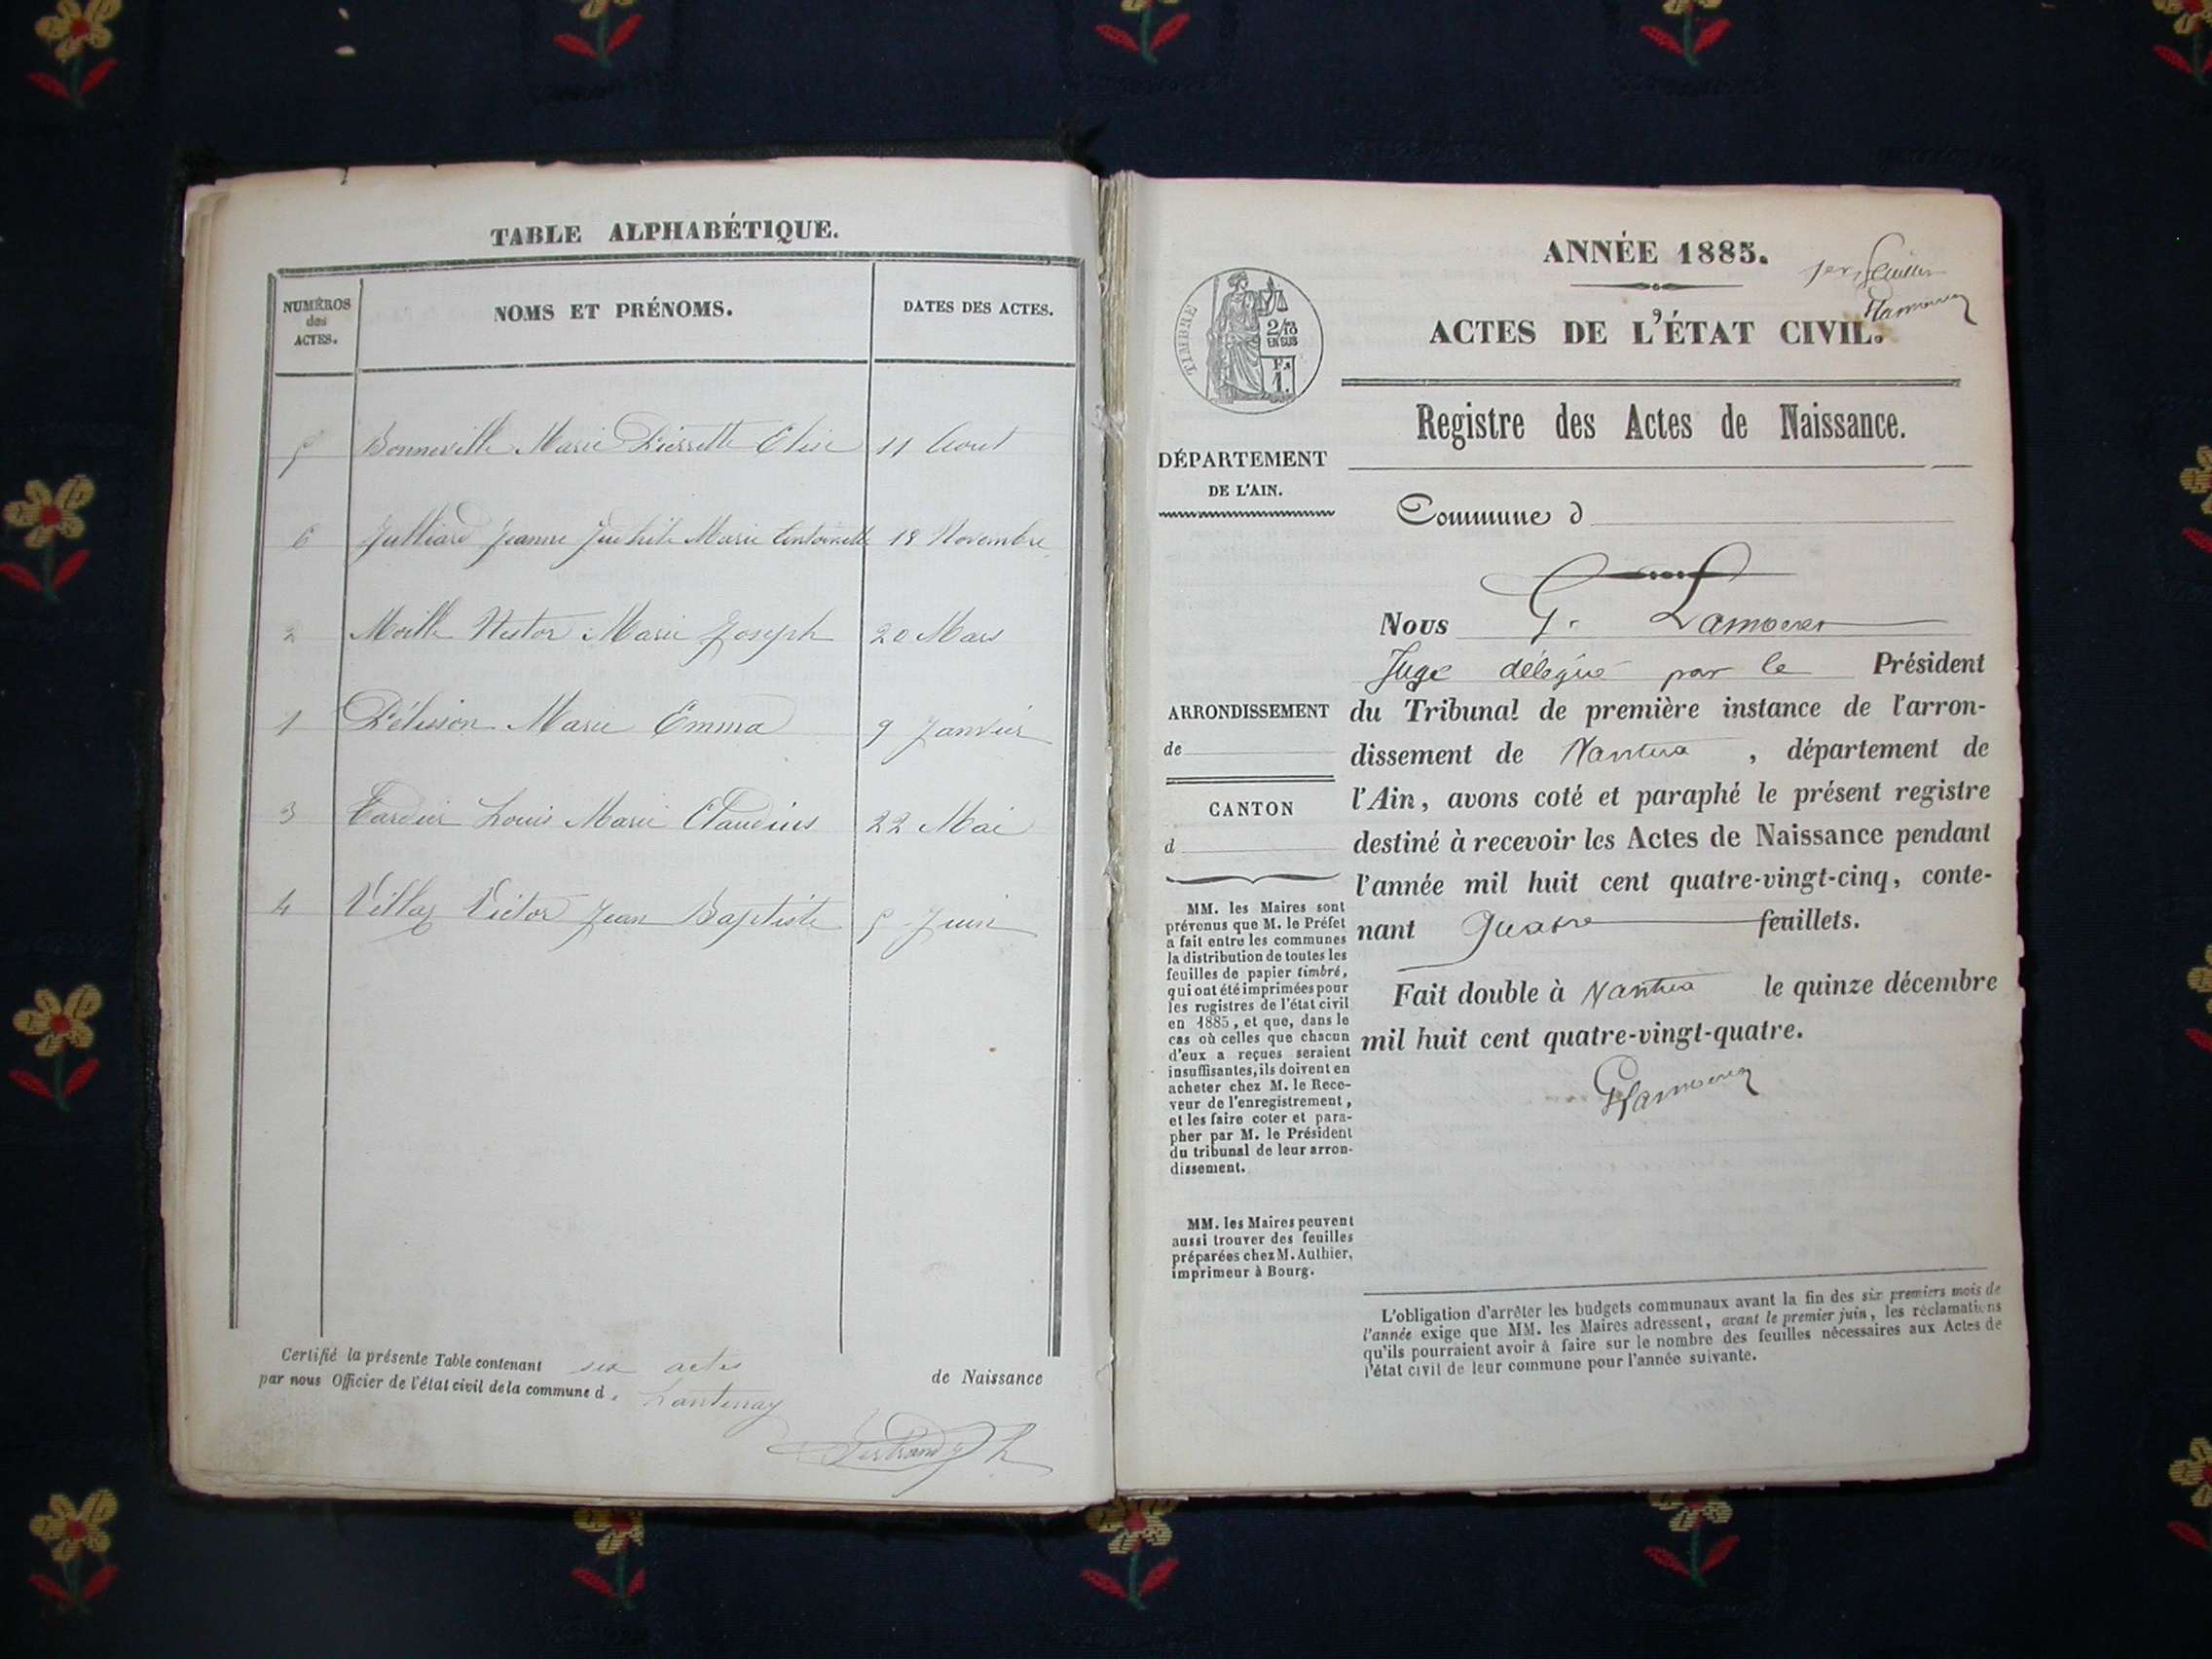 TABLE ALPHABÉTIQUE.
NUMÉROS des ACTES.
NOMS ET PRÉNOMS.
DATES DES ACTES.
5 Bonneville Marie Pierrette Elise 11 Aout
6 Julliard Jeanne Marie Antoinette 18 Novembre
2 Moille Nestor Marie Joseph 20 Mars
1 Pélisson Marie Emma 9 Janvier
3 Tardier Louis Marie Claudius 22 Mai
4 Victor Jean Baptiste 5 Juin
Certifié la présente Table contenant six actes de Naissance
par nous Officier de l'état civil de la commune d Lantenay
ANNÉE 1885.
1er feuillet
ACTES DE L'ÉTAT CIVIL.
TIMBRE
2/10
EN SUS
Fr
1.
Registre des Actes de Naissance.
DÉPARTEMENT
DE L'AIN.
Commune d
Nous G. Lamoerer
Juge délégué par le Président
ARRONDISSEMENT
de
du Tribunal de première instance de l'arron-
dissement de Nantua, département de
CANTON
d
l'Ain, avons coté et paraphé le présent registre
destiné à recevoir les Actes de Naissance pendant
l'année mil huit cent quatre-vingt-cinq, conte-
nant quatre feuillets.
Fait double à Nantua le quinze décembre
mil huit cent quatre-vingt-quatre.
MM. les Maires sont
prévenus que M. le Préfet
a fait entre les communes
la distribution de toutes les
feuilles de papier timbré,
qui ont été imprimées pour
les registres de l'état civil
en 1885, et que, dans le
cas où celles que chacun
d'eux a reçues seraient
insuffisantes, ils doivent en
acheter chez M. le Rece-
veur de l'enregistrement,
et les faire coter et para-
pher par M. le Président
du tribunal de leur arron-
dissement.
MM. les Maires peuvent
aussi trouver des feuilles
préparées chez M. Authier,
imprimeur à Bourg.
L'obligation d'arrêter les budgets communaux avant la fin des six premiers mois de
l'année exige que MM. les Maires adressent, avant le premier juin, les réclamations
qu'ils pourraient avoir à faire sur le nombre des feuilles nécessaires aux Actes de
l'état civil de leur commune pour l'année suivante.